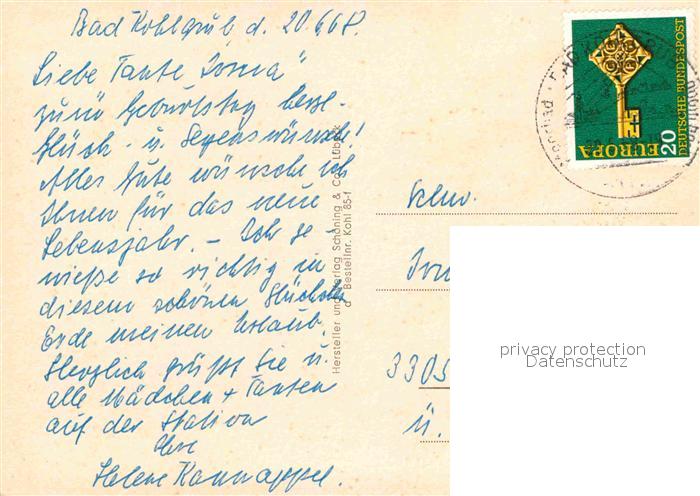 Bad Kohlgrub, d. 20.6.68.
Liebe Tante Irma"
zum Geburtstag herzl.
Glück- u. Segenswünsche!
Alles Gute wünsche ich
Ihnen für das neue
Lebensjahr. – Ich ge-
nieße so richtig in
diesem schönen
Erde meinen Urlaub.
Herzlich grüßt Sie u.
alle Mädchen + Tanten
auf der Station
Ihre
Helene Kannappel.
Hersteller und Verlag Schöning & Co., Lübeck
Bestellnr. Kohl 85
EUROPA
20
DEUTSCHE BUNDESPOST
Schw.
3305
ü.
privacy protection
Datenschutz